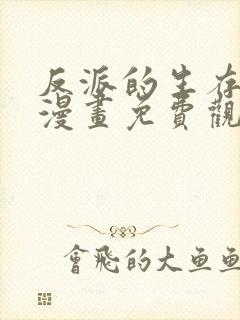 反派的生存
漫畫免費觀
會飛的大魚魚